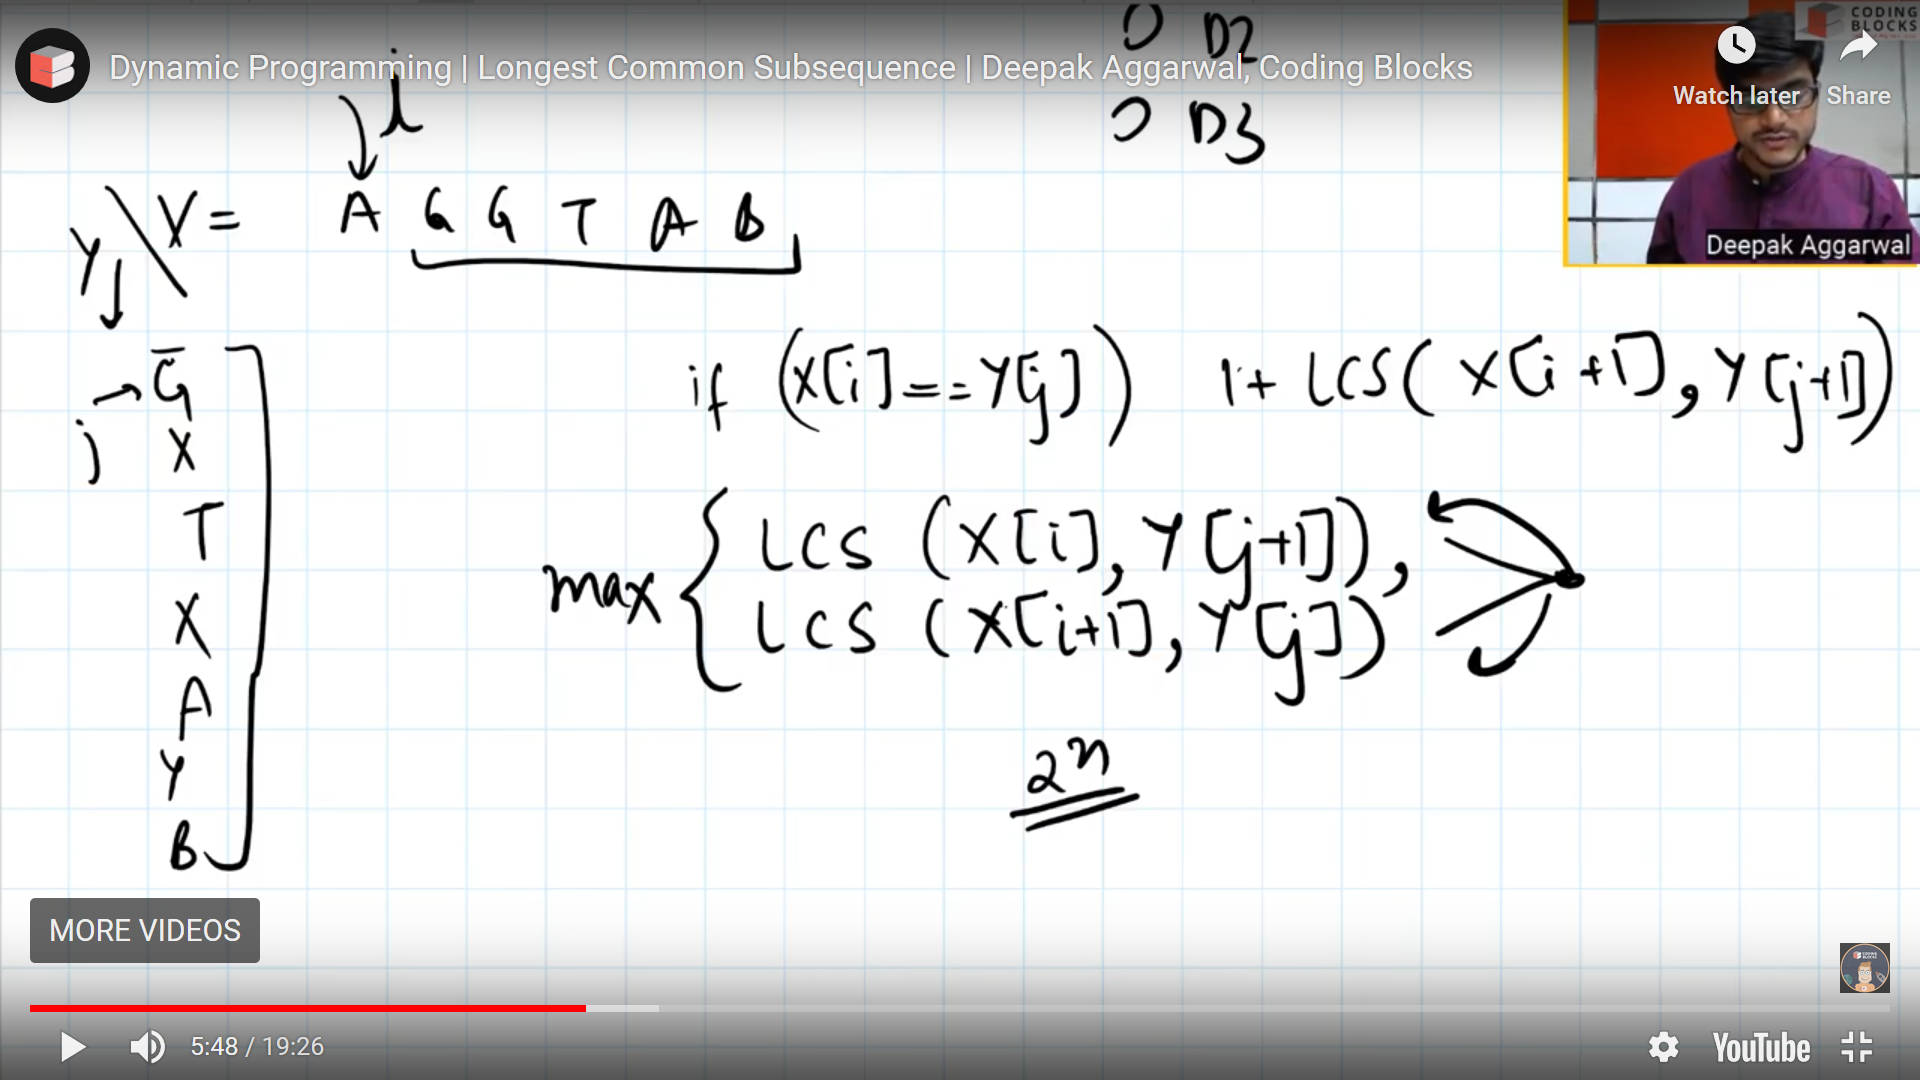 Dynamic Programming | Longest Common Subsequence | Deepak Aggarwal, Coding Blocks
CODING
BLOCKS
Watch later
Share
D2
D3
i
Y \ X = A G G T A B
Deepak Aggarwal
j → G
X
T
X
A
Y
B
if (X[i] == Y[j]) 1 + LCS( X[i+1], Y[j+1])
max { LCS (X[i], Y[j+1]),
LCS (X[i+1], Y[j])
2ⁿ
MORE VIDEOS
5:48 / 19:26
YouTube